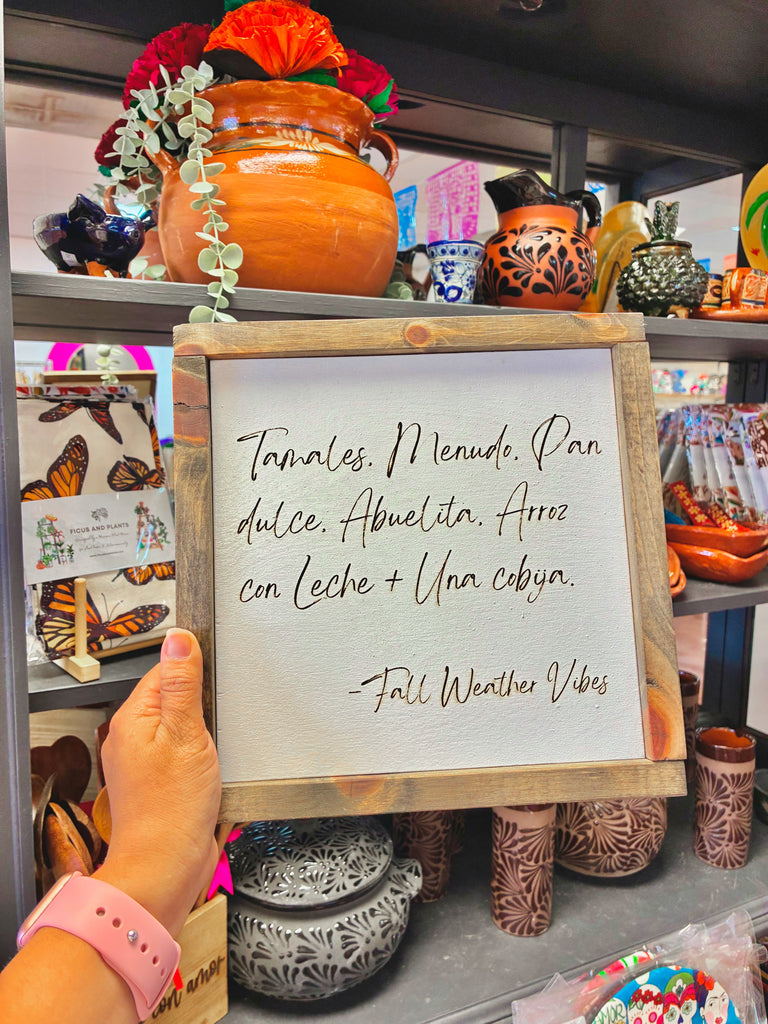 Tamales, Menudo, Pan
dulce, Abuelita, Arroz
con Leche + Una cobija.
-Fall Weather Vibes
FICUS AND PLANTS
con amor